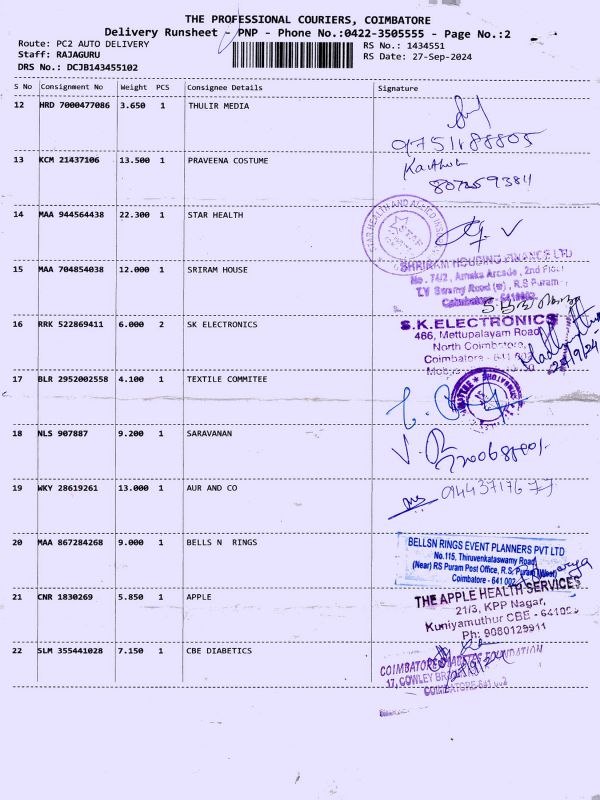 THE PROFESSIONAL COURIERS, COIMBATORE
Delivery Runsheet - PNP - Phone No.:0422-3505555 - Page No.:2
Route: PC2 AUTO DELIVERY
RS No.: 1434551
Staff: RAJAGURU
RS Date: 27-Sep-2024
DRS No.: DCJB143455102
S No Consignment No Weight PCS Consignee Details Signature
12 HRD 7000477086 3.650 1 THULIR MEDIA
9751188805
13 KCM 21437106 13.500 1 PRAVEENA COSTUME
14 MAA 944564438 22.300 1 STAR HEALTH
STAR HEALTH AND ALLIED INS
STAR
15 MAA 704854038 12.000 1 SRIRAM HOUSE
SHRIRAM HOUSING FINANCE LTD
No. 74/2, Amaka Arcade, 2nd Floor
T.V Swamy Road (w), R.S Puram
Coimbatore - 641002
16 RRK 522869411 6.000 2 SK ELECTRONICS
S.K.ELECTRONICS
466, Mettupalayam Road
North Coimbatore,
Coimbatore - 641 002
17 BLR 2952002558 4.100 1 TEXTILE COMMITEE
18 NLS 907887 9.200 1 SARAVANAN
19 WKY 28619261 13.000 1 AUR AND CO
9443717677
20 MAA 867284268 9.000 1 BELLS N RINGS
BELLSN RINGS EVENT PLANNERS PVT LTD
No.115, Thiruvenkataswamy Road
(Near) RS Puram Post Office, R.S. Puram (West)
Coimbatore - 641 002
21 CNR 1830269 5.850 1 APPLE
THE APPLE HEALTH SERVICES
21/3, KPP Nagar,
Kuniyamuthur CBE - 641008
Ph: 9080129911
22 SLM 355441028 7.150 1 CBE DIABETICS
COIMBATORE DIABETES FOUNDATION
17, COWLEY BROWN
COIMBATORE 641 002